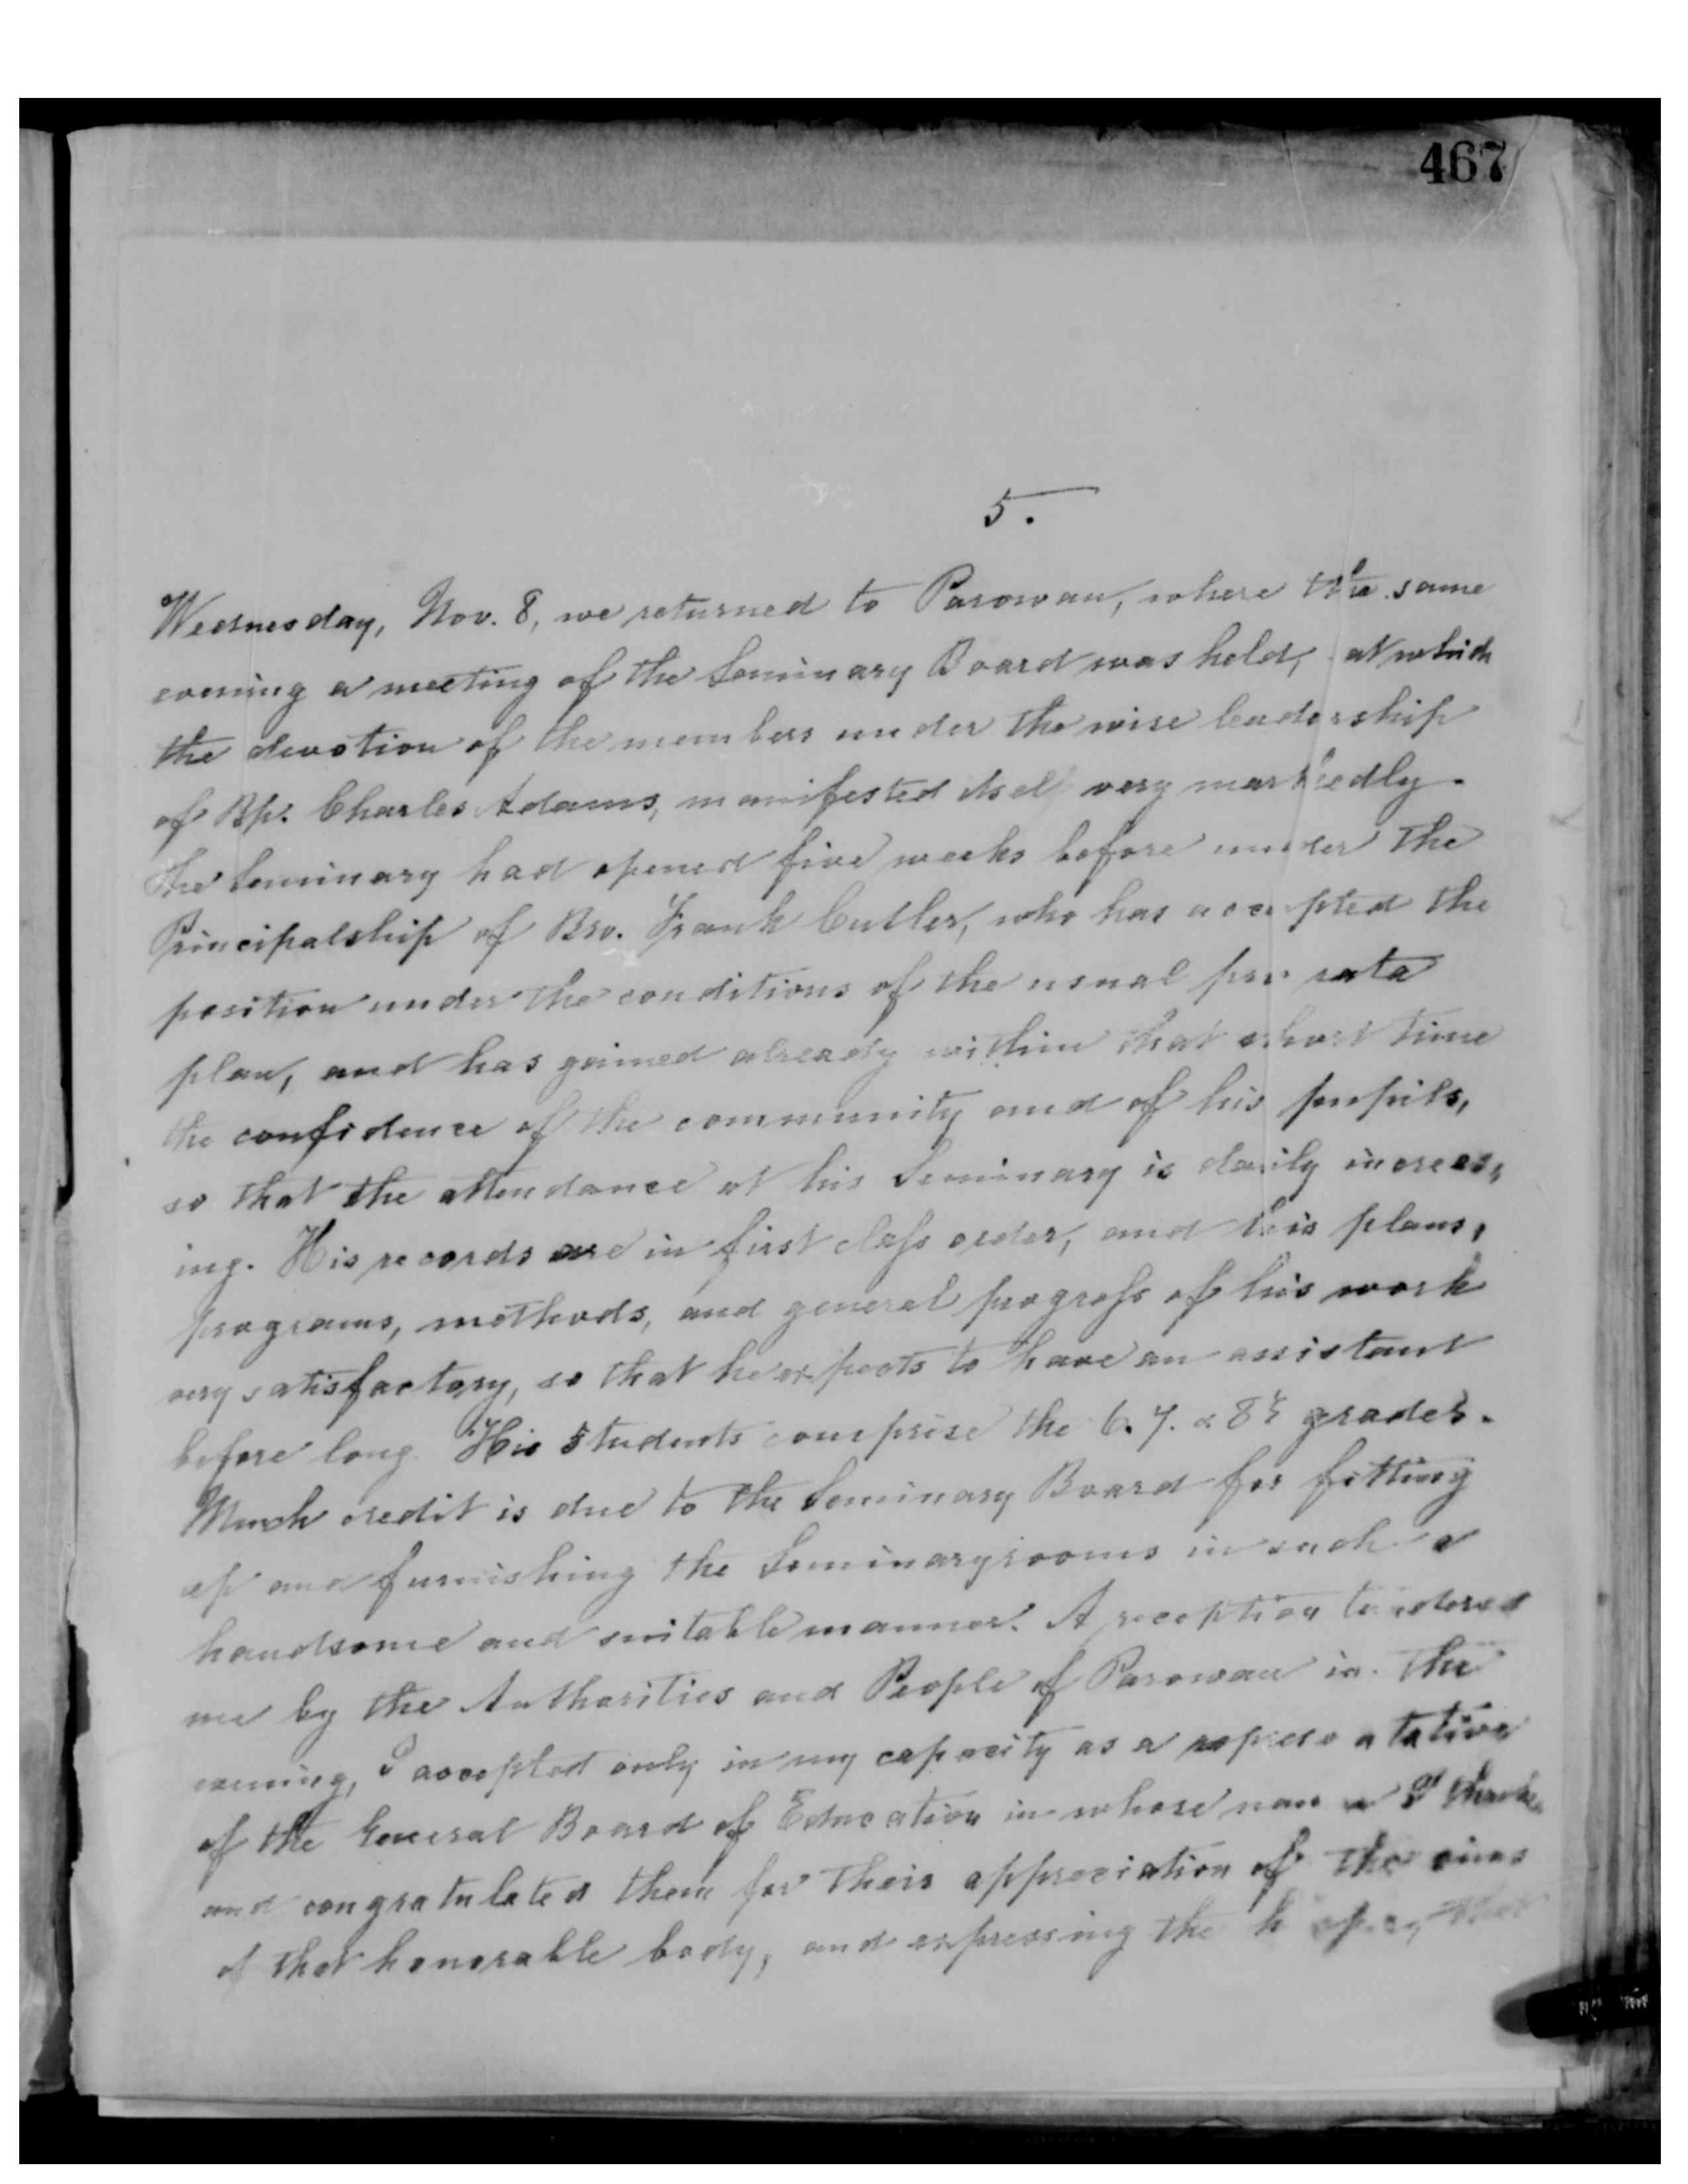 467
5.
Wednesday, Nov. 8, we returned to Parowan, where the same
evening a meeting of the Seminary Board was held, at which
the devotion of the members under the wise leadership
of Bp. Charles Adams, manifested itself very markedly.
The Seminary had opened five weeks before under the
Principalship of Bro. Frank Cutler, who has accepted the
position under the conditions of the usual pro rata
plan, and has gained already within that short time
the confidence of the community and of his pupils,
so that the attendance at his Seminary is daily increas,
ing. His records are in first class order, and his plans,
programs, methods, and general progress of his work
very satisfactory, so that he expects to have an assistant
before long. His students comprise the 6. 7. & 8th grades.
Much credit is due to the Seminary Board for fitting
up and furnishing the Seminaryrooms in such a
handsome and suitable manner. A reception tendered
me by the Authorities and People of Parowan in the
evening, I accepted only in my capacity as a representative
of the General Board of Education in whose name I thanked
and congratulated them for their appreciation of the aims
of that honorable body, and expressing the hope, that